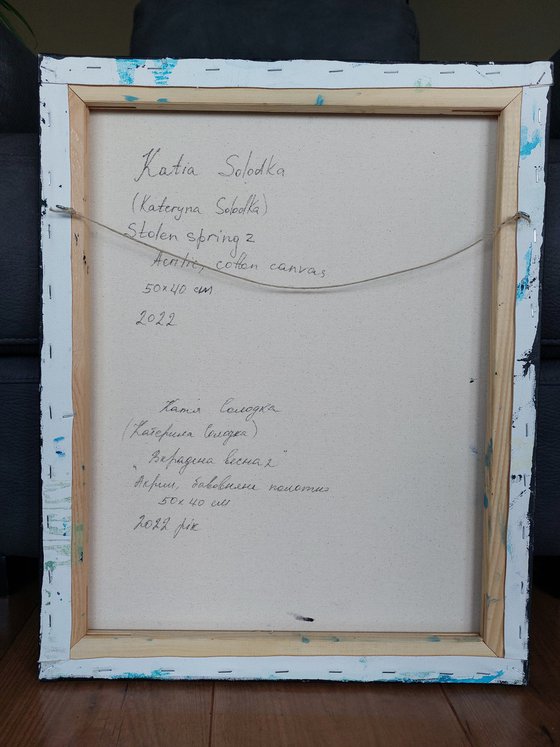 Katia Solodka
(Kateryna Solodka)
Stolen spring 2
Acrilic, cotton canvas
50×40 см
2022
Катя Солодка
(Катерина Солодка)
"Вкрадена весна 2"
Акрил, бавовняне полотно
50×40 см
2022 рік